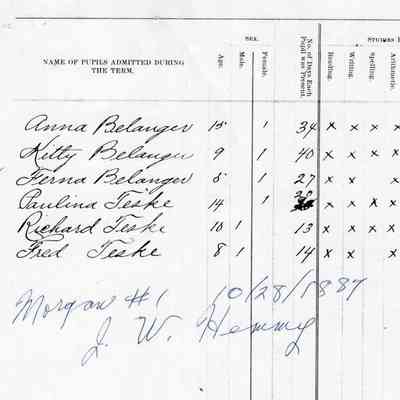 SEX. STUDIES
NAME OF PUPILS ADMITTED DURING THE TERM. Age. Male. Female. No. of Days Each Pupil was Present. Reading. Writing. Spelling. Arithmetic.
Anna Belanger 15 1 34 x x x x
Kitty Belanger 9 1 40 x x x x
Ferna Belanger 5 1 27 x x x
Paulina Teske 14 1 x x x x
Richard Teske 10 1 13 x x x x
Fred Teske 8 1 14 x x x
Morgan #1 10/28/1887
J. W. Hemmy